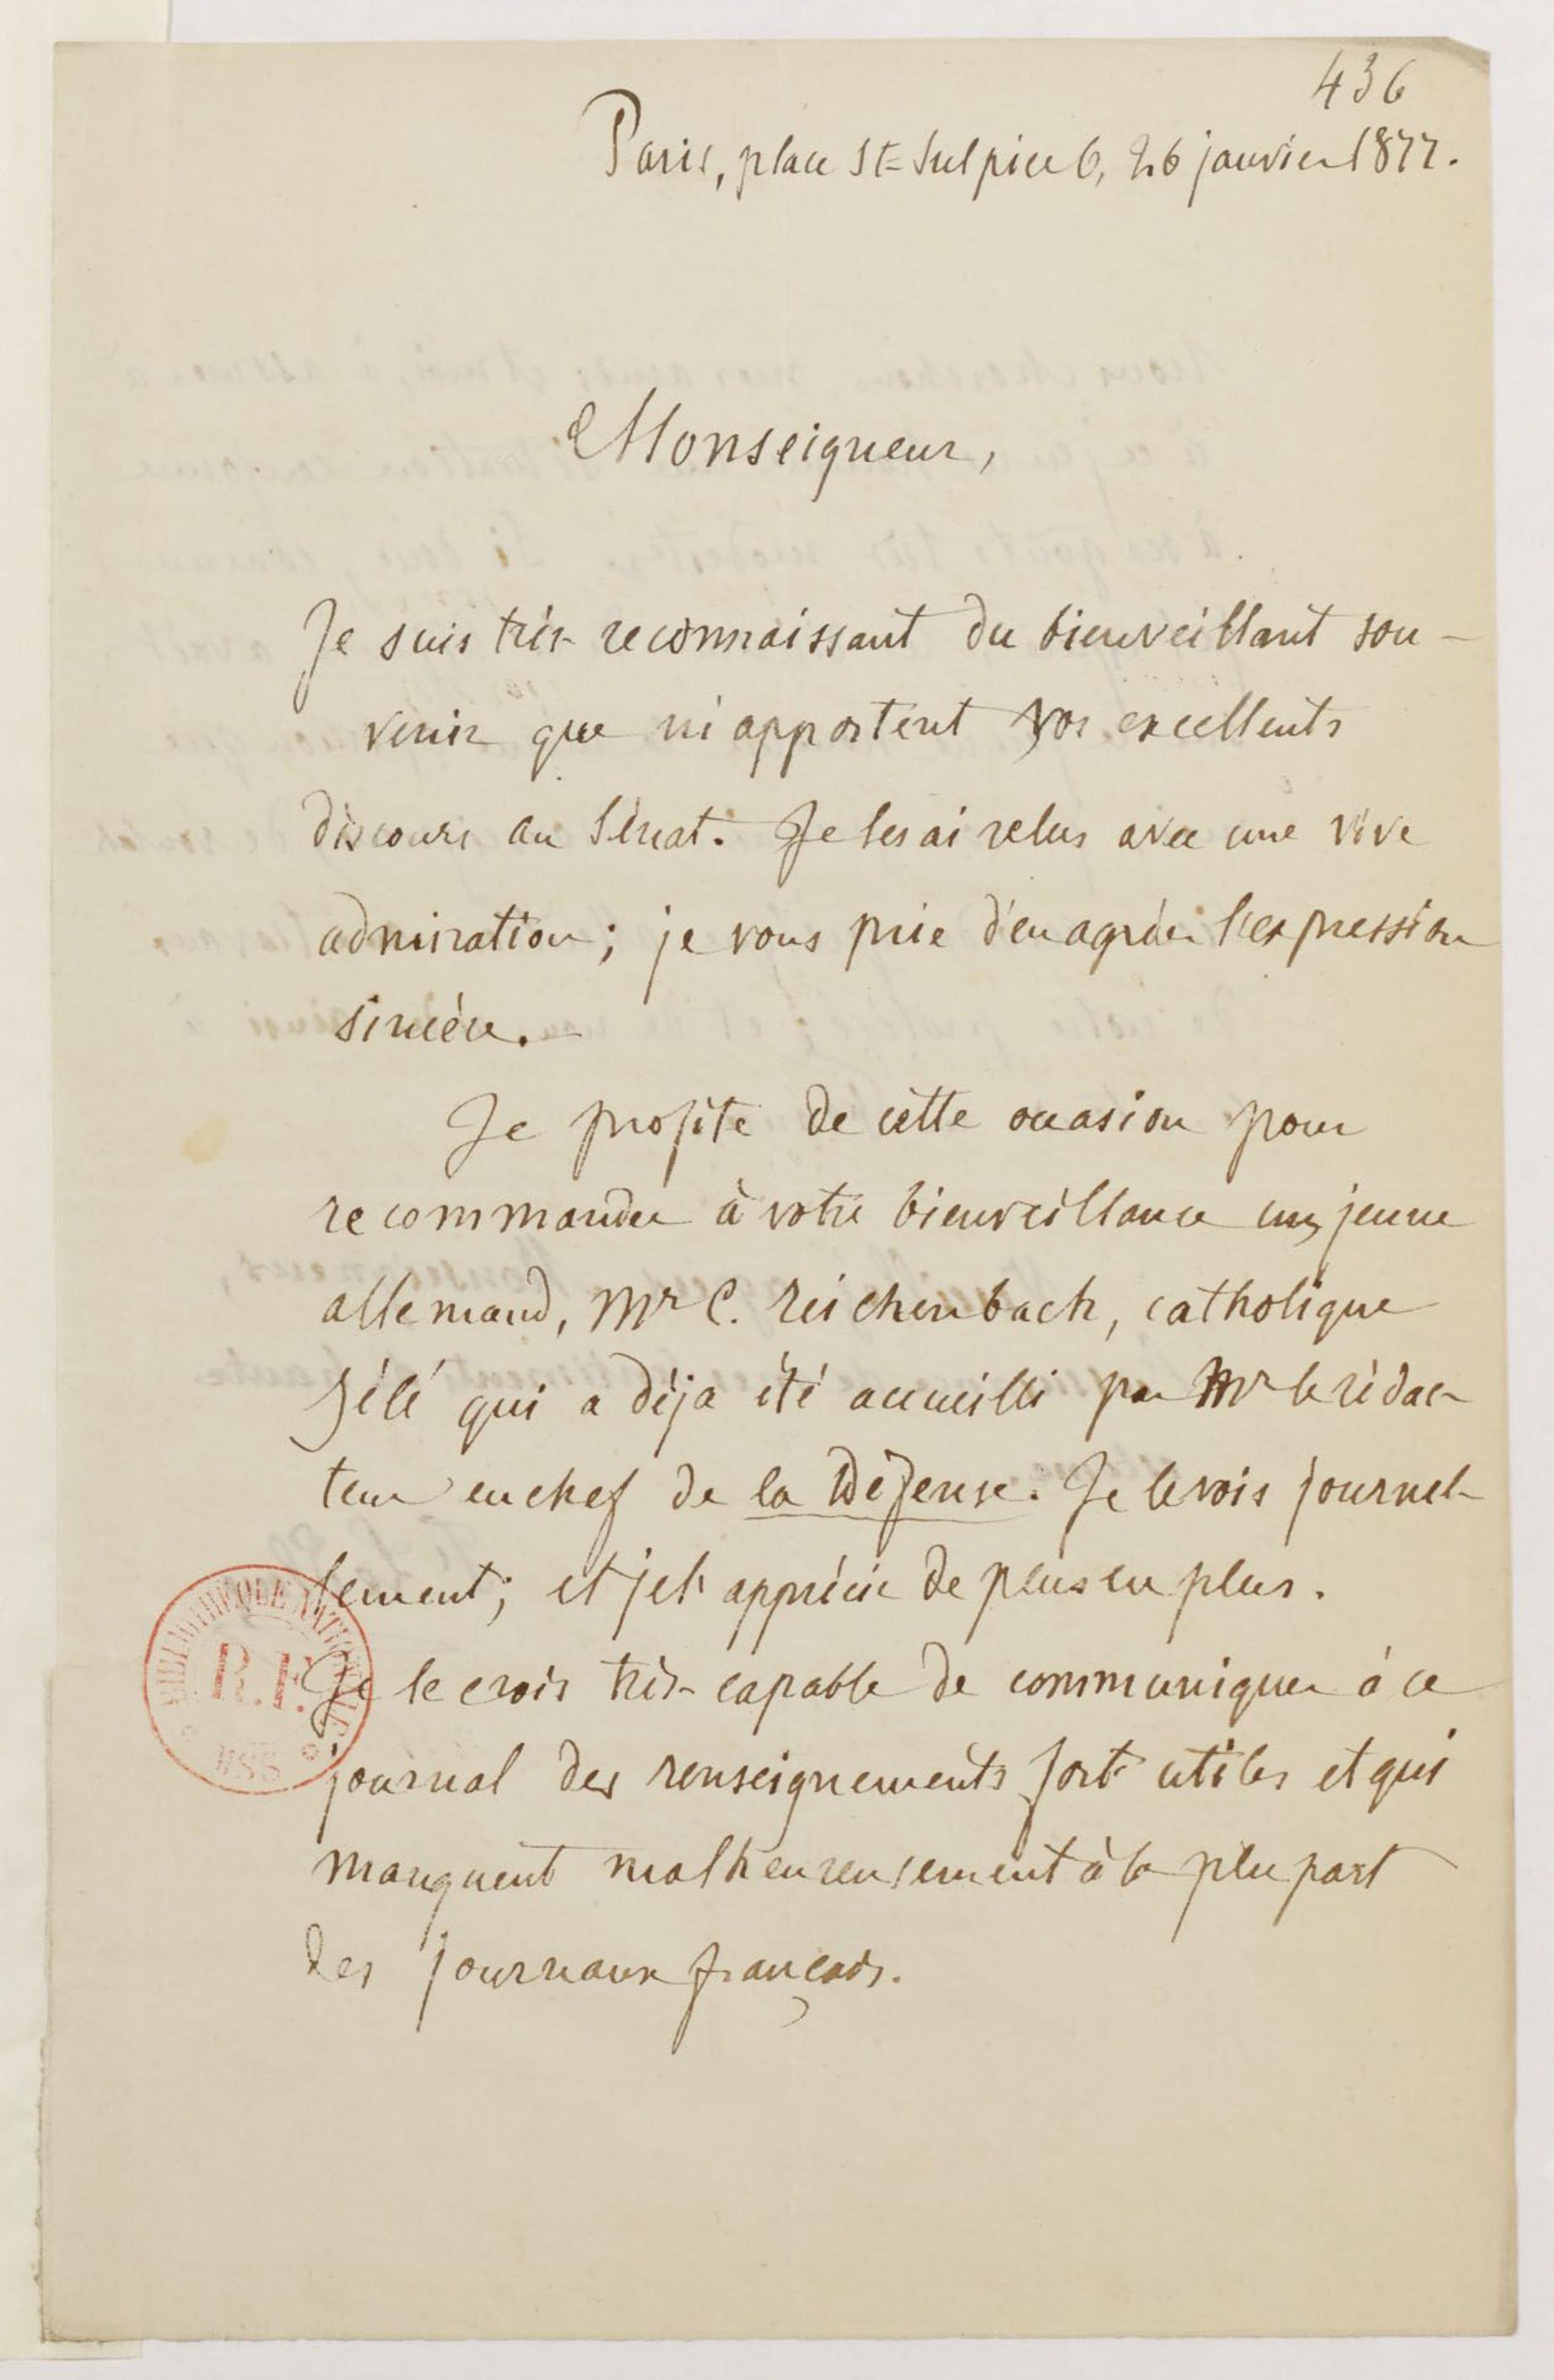 436
Paris, place St= Sulpice 6, 26 janvier 1877.
Monseigneur,
Je suis très reconnaissant du bienveillant sou-
venir que m'apportent vos excellents
discours au Sénat. Je les ai relus avec une vive
admiration; je vous prie d'en agréer l'expression
sincère.-
Je profite de cette occasion pour
recommander à votre bienveillance un jeune
allemand, Mr C. Reichenbach, catholique
zélé qui a déja été accueilli par Mr le rédac-
teur en chef de la Défense. Je le vois journel-
lement; et je l'apprécie de plus en plus.
Je le crois très capable de communiquer à ce
journal des renseignements fort utiles et qui
manquent malheureusement à la plupart
des journaux français.
BIBLIOTHÈQUE NATIONALE
R.F.
MSS